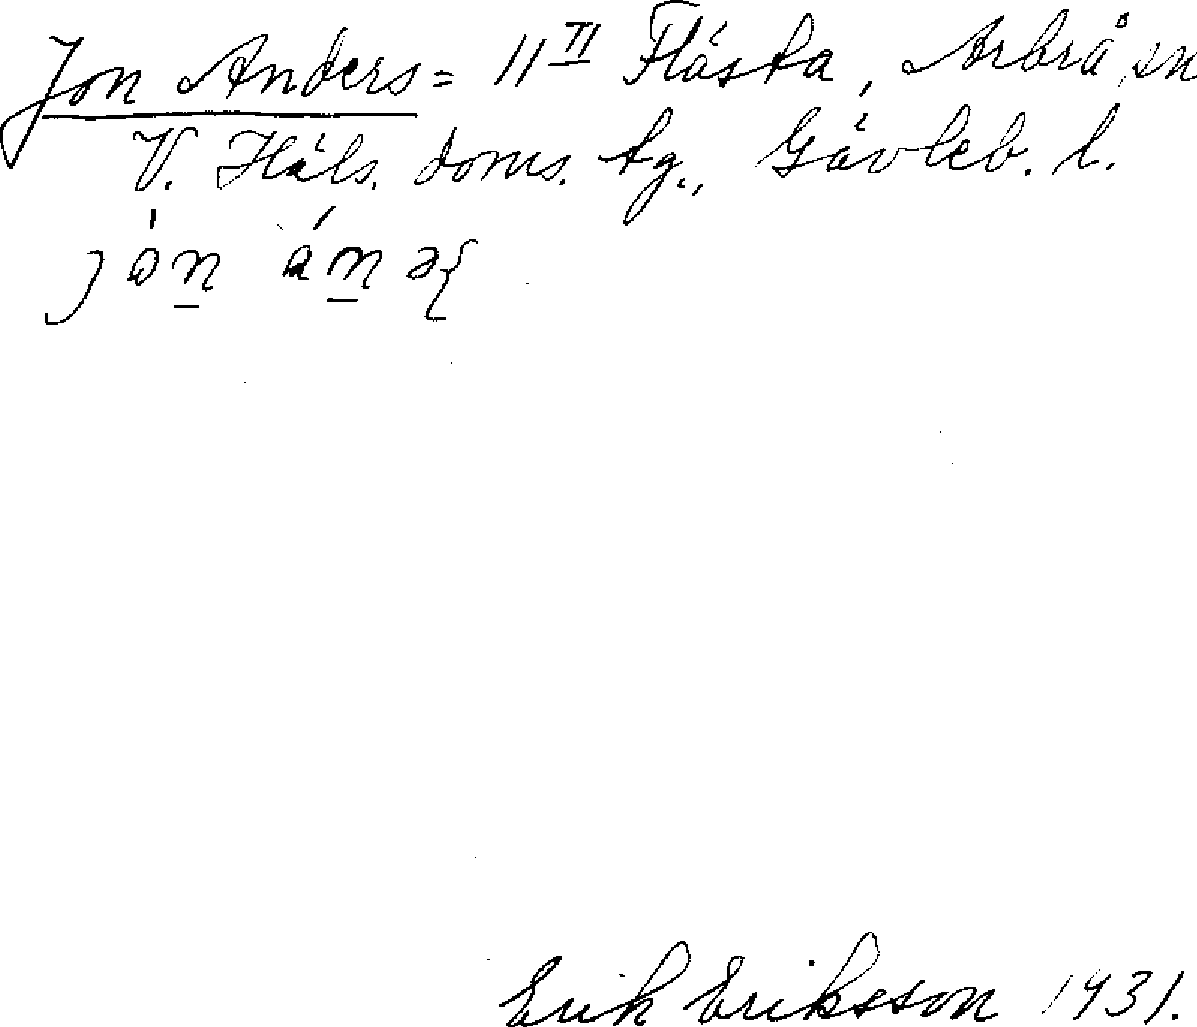 Jon Anders = 11 II Flästa, Arbrå sn
V. Häls. doms. tg., Gävleb. l.
Erik Eriksson 1931.